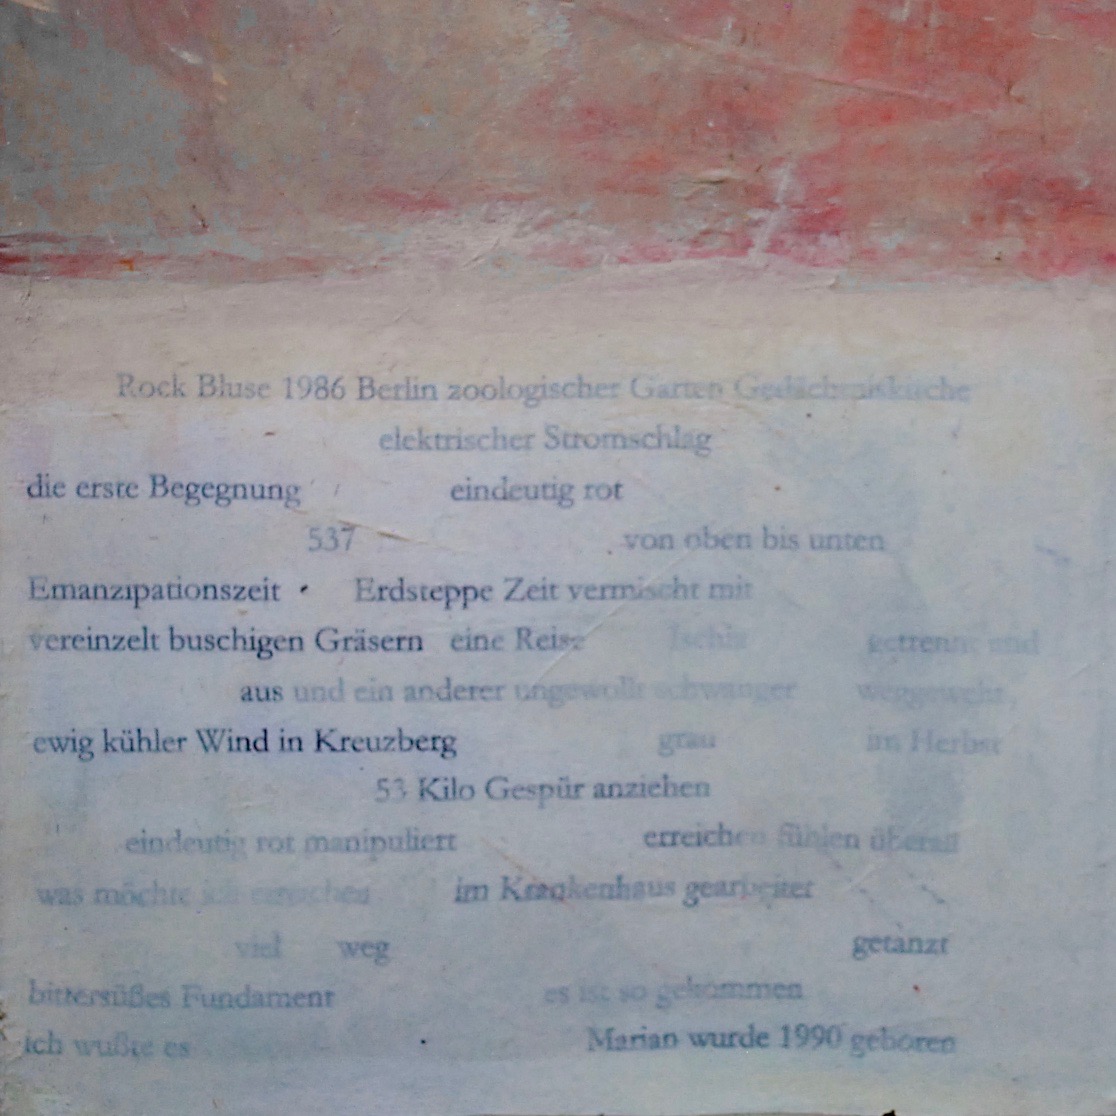 Rock Bluse 1986 Berlin zoologischer Garten Gedächtniskirche
elektrischer Stromschlag
die erste Begegnung eindeutig rot
537 von oben bis unten
Emanzipationszeit Erdsteppe Zeit vermischt mit
vereinzelt buschigen Gräsern eine Reise Ischia getrennt und
aus und ein anderer ungewollt schwanger weggeweht,
ewig kühler Wind in Kreuzberg grau im Herbst
53 Kilo Gespür anziehen
eindeutig rot manipuliert erreichen fühlen überall
was möchte ich erreichen im Krankenhaus gearbeitet
viel weg getanzt
bittersüßes Fundament es ist so gekommen
ich wußte es Marian wurde 1990 geboren